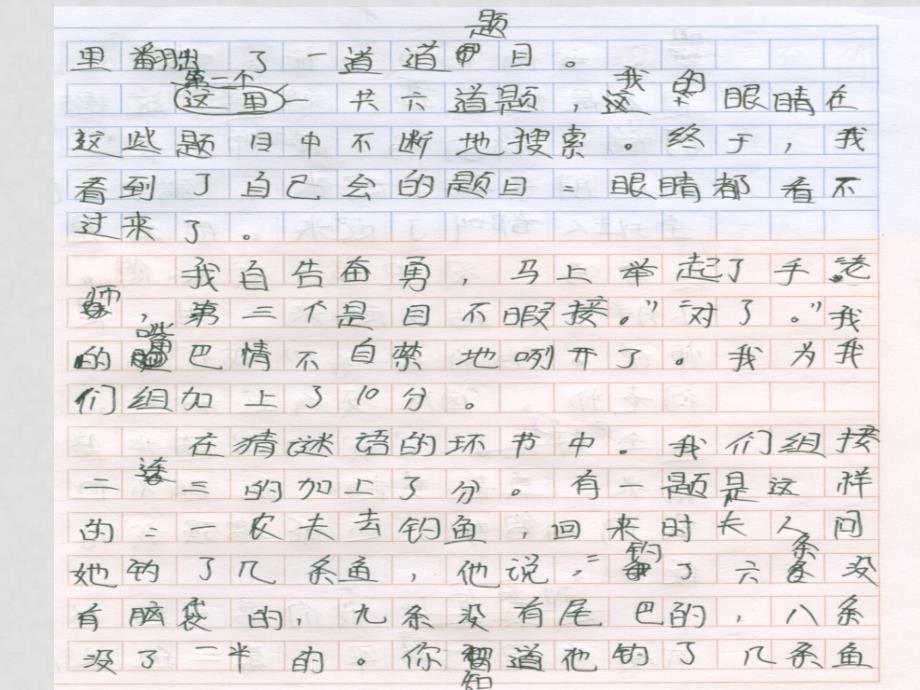 里翻出了一道道题目。
第二个这里一共六道题,我的眼睛在
这些题目中不断地搜索。终于,我
看到了自己会的题目:眼睛都看不
过来了。
我自告奋勇,马上举起了手:老
师,第三个是目不暇接。”“对了。”我
的嘴巴情不自禁地咧开了。我为我
们组加上了10分。
在猜谜语的环节中。我们组接
二连三的加上了分。有一题是这样
的:一农夫去钓鱼,回来时夫人问
她钓了几条鱼,他说:“钓了六条没
有脑袋的,九条没有尾巴的,八条
没了一半的。你知道他钓了几条鱼